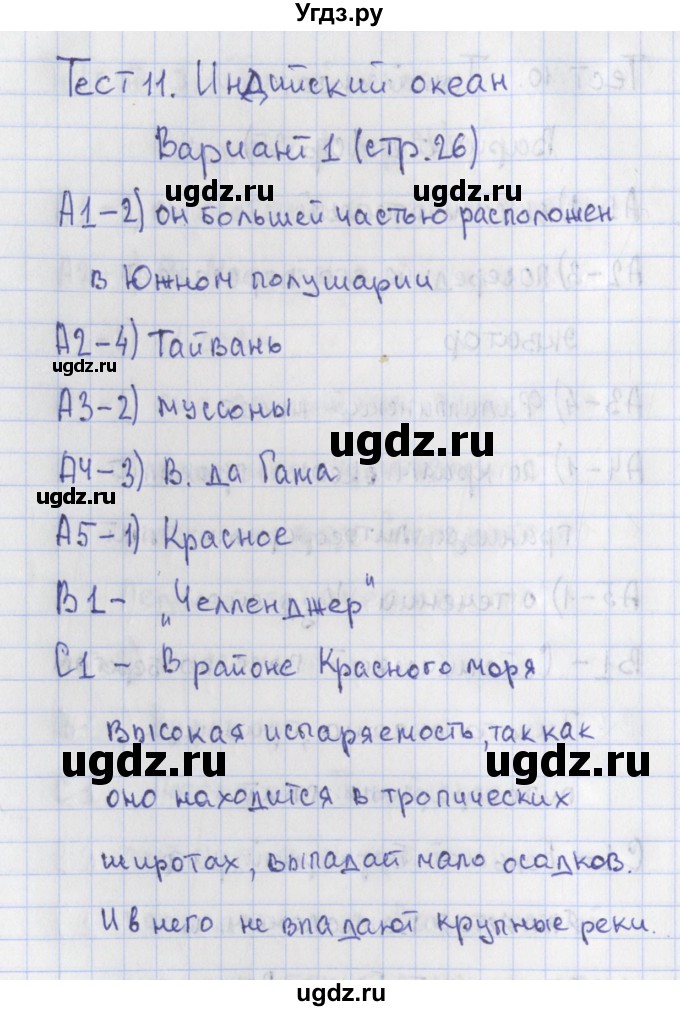 Угдз.ру
Тест 11. Индийский океан
Вариант 1 (стр.26)
ugdz.ru ugdz.ru
А1-2) он большей частью расположен
в Южном полушарии
А2-4) Тайвань
ugdz.ru
А3-2) муссоны
ugdz.ru
А4-3) В. да Гама
ugdz.ru
А5-1) Красное
В1- „Челленджер"
С1 - В районе Красного моря
высокая испаряемость, так как
ugdz.ru ugdz.ru
оно находится в тропических
широтах, выпадай мало осадков.
И в него не впадают крупные реки.
ugdz.ru